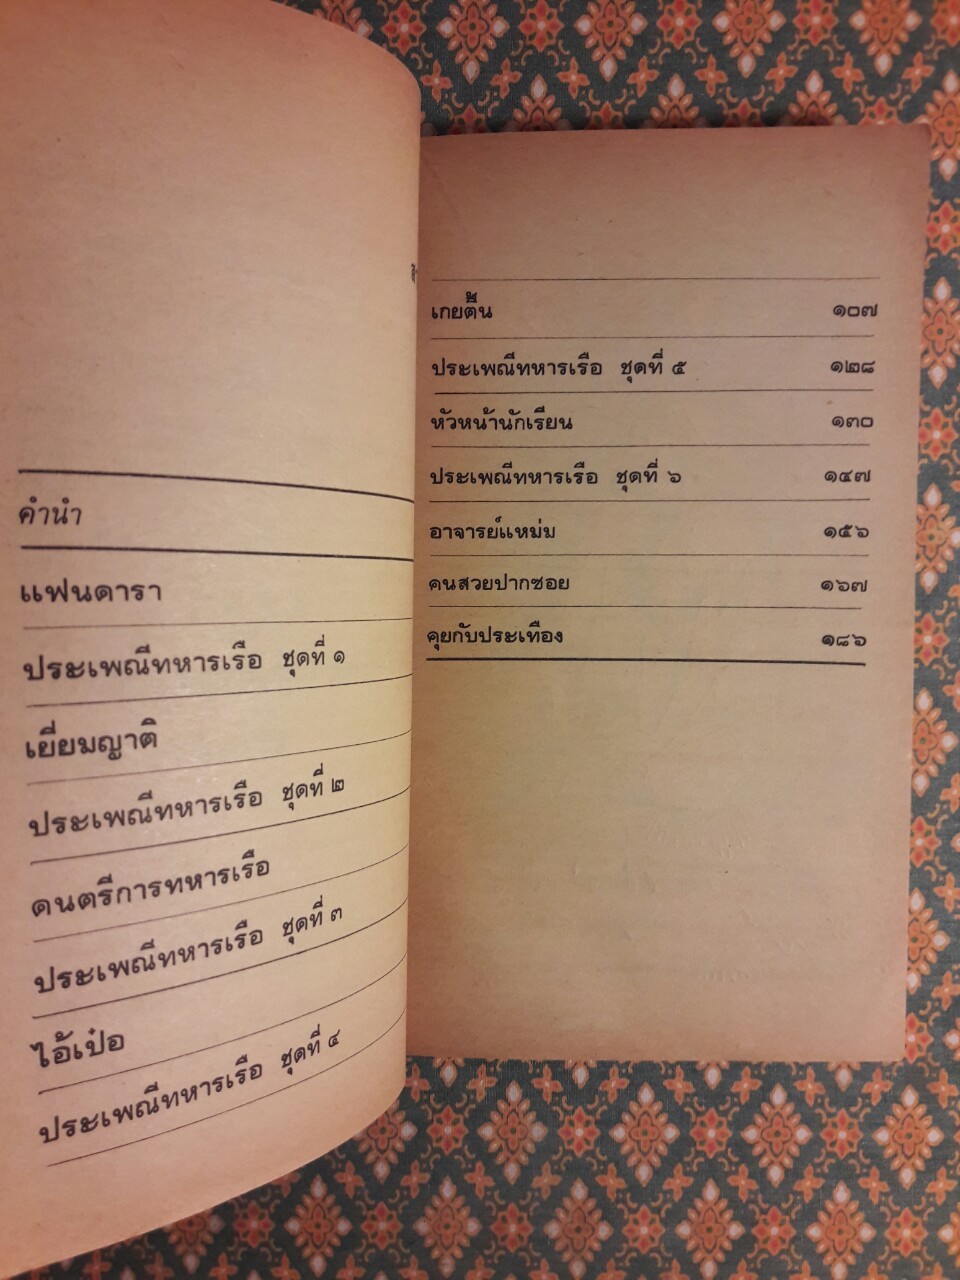 คำนำ
แฟนดารา
ประเพณีทหารเรือ ชุดที่ ๑
เยี่ยมญาติ
ประเพณีทหารเรือ ชุดที่ ๒
ดนตรีการทหารเรือ
ประเพณีทหารเรือ ชุดที่ ๓
ไอ้เป๋อ
ประเพณีทหารเรือ ชุดที่ ๔
เกยตื้น ๑๐๗
ประเพณีทหารเรือ ชุดที่ ๕ ๑๒๘
หัวหน้านักเรียน ๑๓๐
ประเพณีทหารเรือ ชุดที่ ๖ ๑๔๗
อาจารย์แหม่ม ๑๕๖
คนสวยปากซอย ๑๖๗
คุยกับประเทือง ๑๘๖